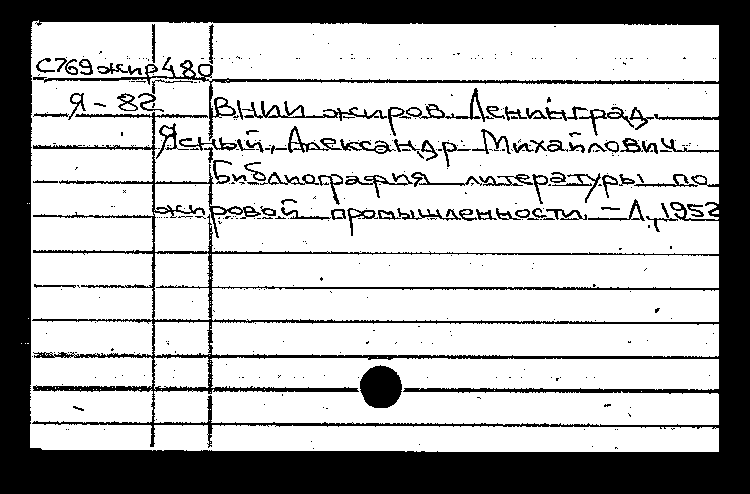 С769жир480
Я-82 ВНИИ жиров. Ленинград.
Ясный, Александр Михайлович.
Библиография литературы по
жировой промышленности. — Л., 1952